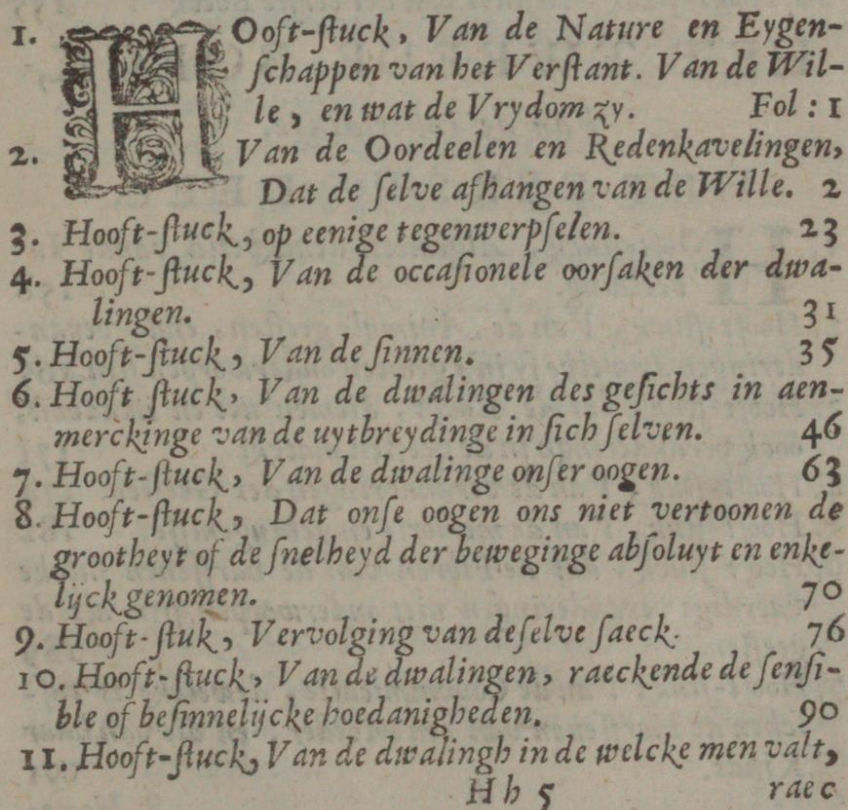 1. HOoft-ſtuck, Van de Nature en Eygen-
ſchappen van het Verſtant. Van de Wil-
le, en wat de Vrydom zy. Fol : 1
2. Van de Oordeelen en Redenkavelingen,
Dat de ſelve afhangen van de Wille. 2
3. Hooft-ſtuck, op eenige tegenwerpſelen. 23
4. Hooft-ſtuck, Van de occaſionele oorſaken der dwa-
lingen. 31
5. Hooft-ſtuck, Van de ſinnen. 35
6. Hooft ſtuck, Van de dwalingen des geſichts in aen-
merckinge van de uytbreydinge in ſich ſelven. 46
7. Hooft-ſtuck, Van de dwalinge onſer oogen. 63
8. Hooft-ſtuck, Dat onſe oogen ons niet vertoonen de
grootheyt of de ſnelheyd der beweginge abſoluyt en enke-
lijck genomen. 70
9. Hooft-ſtuk, Vervolging van deſelve ſaeck. 76
10. Hooft-ſtuck, Van de dwalingen, raeckende de ſenſi-
ble of beſinnelijcke hoedanigheden. 90
11. Hooft-ſtuck, Van de dwalingh in de welcke men valt,
Hh 5 raec